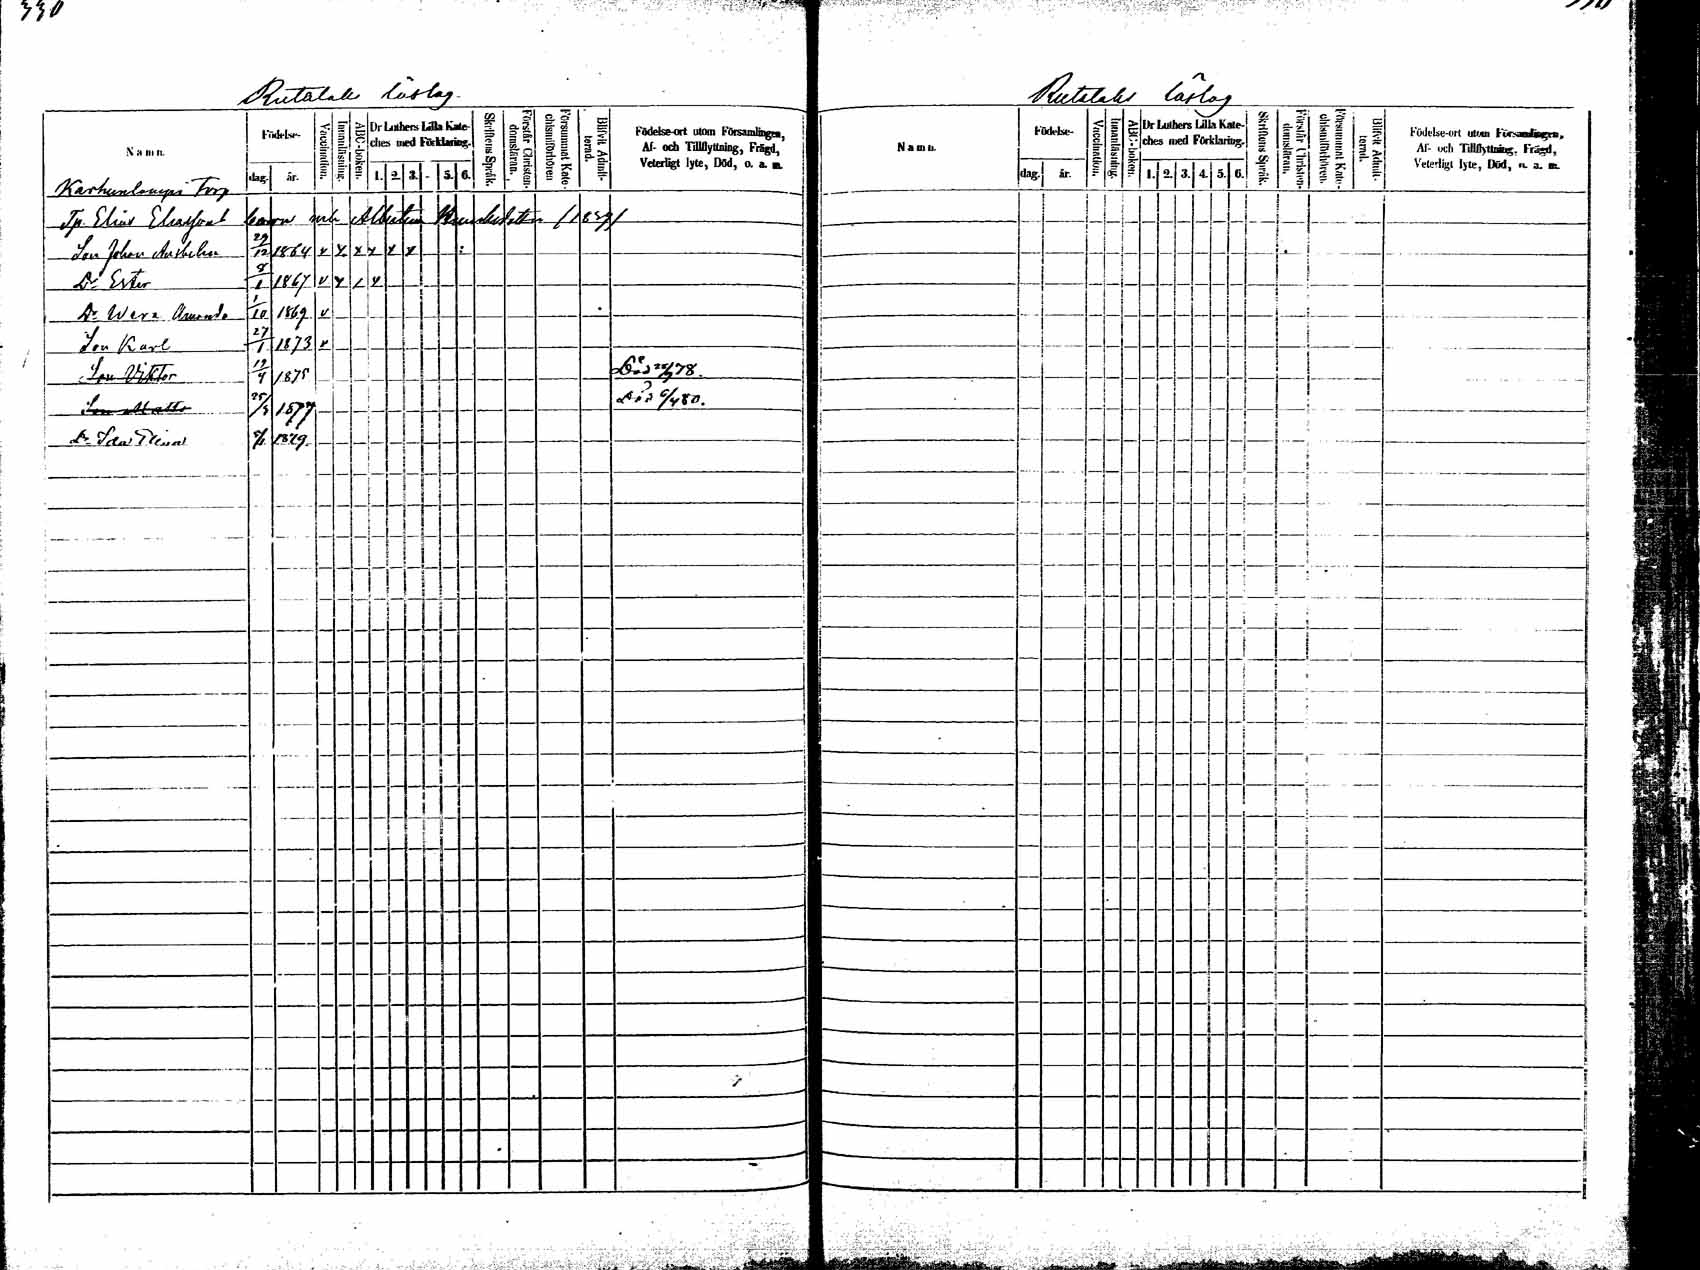 330
Rutalaks läslag.
Namn.
Födelse-
dag. år.
Vaccination.
Innanläsning.
ABC-boken.
Dr Luthers Lilla Kate-
ches med Förklaring.
1. 2. 3. - 5. 6.
Skriftens Språk.
Förstår Christen-
domsläran.
Försummat Kate-
chismiförhören
Blifvit Admit-
terad.
Födelse-ort utom Församlingen,
Af- och Tillflyttning, Frägd,
Veterligt lyte, Död, o. a. m.
Torp
Tp. Elias barn
Son Johan 29/12 1864 v x x x x x
Dr Ester 8/1 1867 v x / x
Dr Wera Amanda 1/10 1869 v
Son Karl 27/1 1873 v
Son Viktor 19/4 1875 Död 78.
Son Matts 25/3 1877 Död 6/4 80.
Dr Ida 1879.
330
Rutalaks läslag
Namn.
Födelse-
dag. år.
Vaccination.
Innanläsning.
ABC-boken.
Dr Luthers Lilla Kate-
ches med Förklaring.
1. 2. 3. 4. 5. 6.
Skriftens Språk.
Förstår Christen-
domsläran.
Försummat Kate-
chismiförhören.
Blifvit Admit-
terad.
Födelse-ort utom Församlingen,
Af- och Tillflyttning, Frägd,
Veterligt lyte, Död, o. a. m.